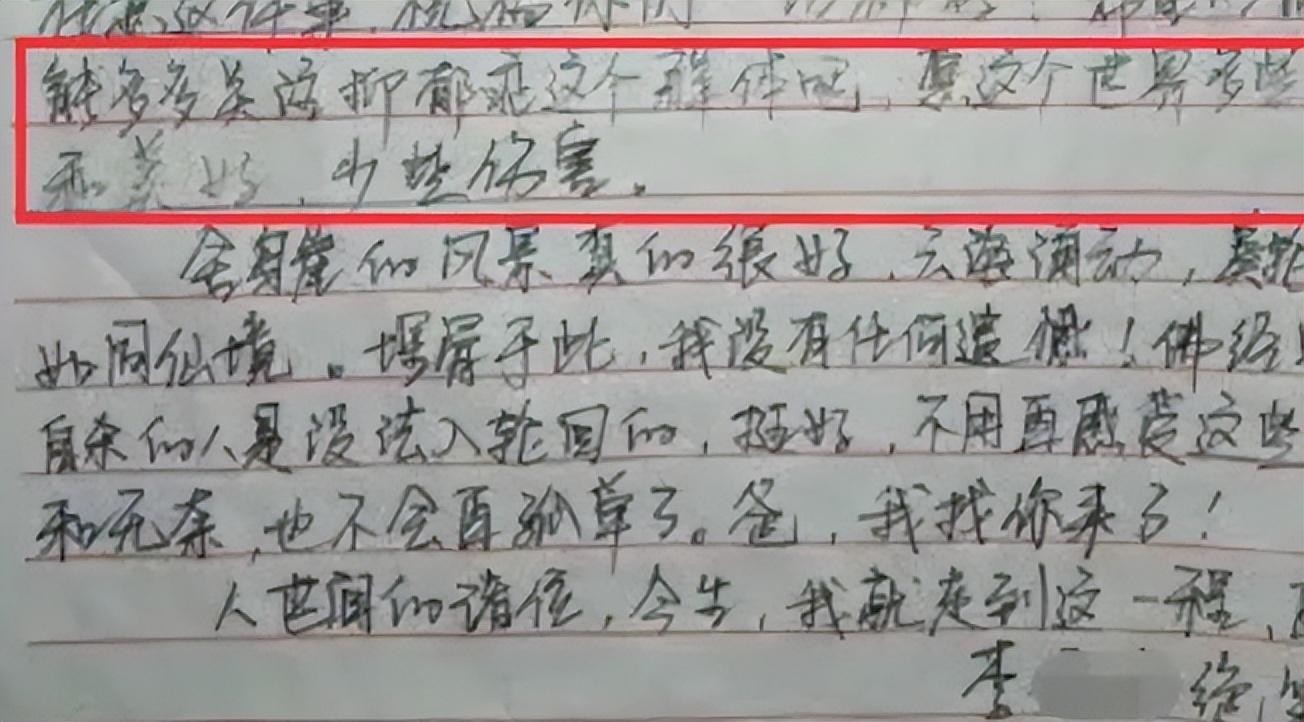 能多多关注抑郁症这个群体吧,愿这个世界多些
和美好,少些伤害。
舍身崖的风景真的很好,云海涌动,
如同仙境。埋屑于此,我没有任何遗憾!佛经
自杀的人是没法入轮回的,挺好,不用再感受这些
和无奈,也不会再孤单了。爸,我找你来了!
人世间的诸位,今生,我就走到这一程,
李 绝